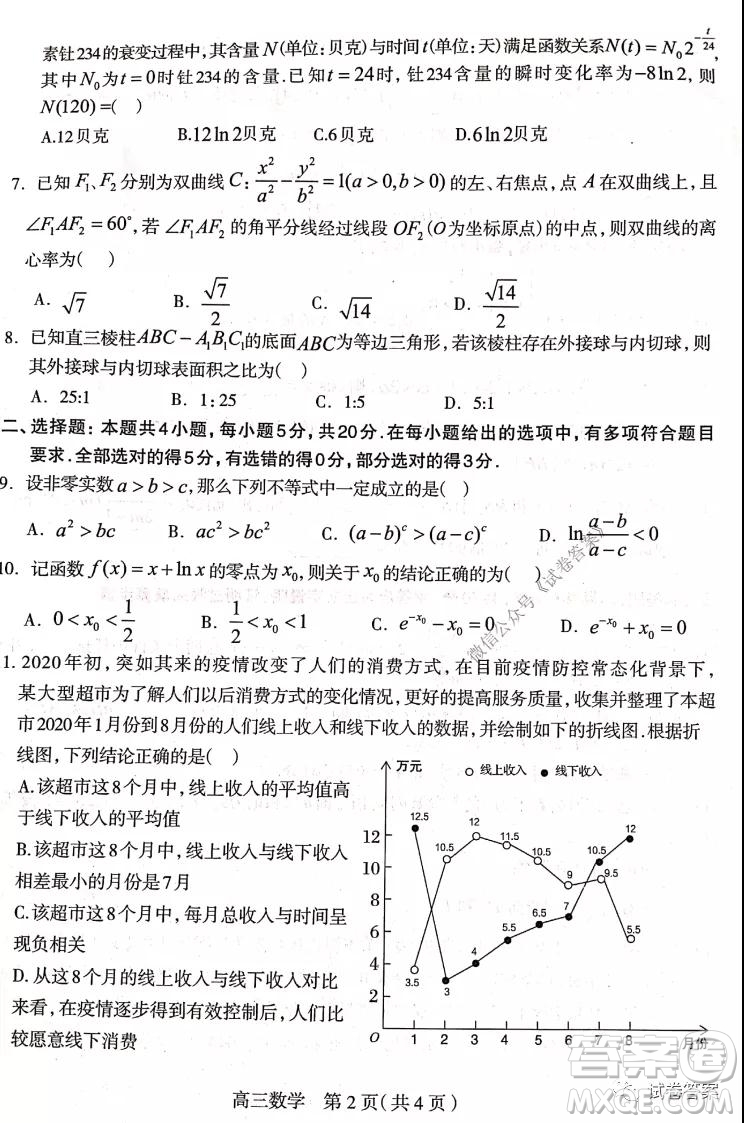 素钍234的衰变过程中,其含量N(单位:贝克)与时间t(单位:天)满足函数关系N(t)=N₀2^{-t/24},
其中N₀为t=0时钍234的含量.已知t=24时,钍234含量的瞬时变化率为-8ln2,则
N(120)=( )
A.12贝克 B.12ln2贝克 C.6贝克 D.6ln2贝克
7. 已知F₁、F₂分别为双曲线C:x²/a²-y²/b²=1(a>0,b>0)的左、右焦点,点A在双曲线上,且
∠F₁AF₂=60°,若∠F₁AF₂的角平分线经过线段OF₂(O为坐标原点)的中点,则双曲线的离
心率为( )
A. √7 B. √7/2 C. √14 D. √14/2
8. 已知直三棱柱ABC-A₁B₁C₁的底面ABC为等边三角形,若该棱柱存在外接球与内切球,则
其外接球与内切球表面积之比为( )
A. 25:1 B. 1:25 C. 1:5 D. 5:1
二、选择题:本题共4小题,每小题5分,共20分.在每小题给出的选项中,有多项符合题目
要求.全部选对的得5分,有选错的得0分,部分选对的得3分.
9. 设非零实数a>b>c,那么下列不等式中一定成立的是( )
A. a²>bc B. ac²>bc² C. (a-b)^c>(a-c)^c D. ln (a-b)/(a-c)<0
10. 记函数f(x)=x+lnx的零点为x₀,则关于x₀的结论正确的为( )
A. 0<x₀<1/2 B. 1/2<x₀<1 C. e^{-x₀}-x₀=0 D. e^{-x₀}+x₀=0
1. 2020年初,突如其来的疫情改变了人们的消费方式,在目前疫情防控常态化背景下,
某大型超市为了解人们以后消费方式的变化情况,更好的提高服务质量,收集并整理了本超
市2020年1月份到8月份的人们线上收入和线下收入的数据,并绘制如下的折线图.根据折
线图,下列结论正确的( )
A.该超市这8个月中,线上收入的平均值高
于线下收入的平均值
B.该超市这8个月中,线上收入与线下收入
相差最小的月份是7月
C.该超市这8个月中,每月总收入与时间呈
现负相关
D.从这8个月的线上收入与线下收入对比
来看,在疫情逐步得到有效控制后,人们比
较愿意线下消费
万元 线上收入 线下收入
12.5 12 11.5 10.5 10.5 12
9 9.5
3.5 3 4 5.5 6.5 7 5.5
12
10
8
6
4
2
O 1 2 3 4 5 6 7 8 月份
微信公众号《试卷答案》
高三数学 第2页(共4页)
试卷答案
答案圈
MXQE.COM